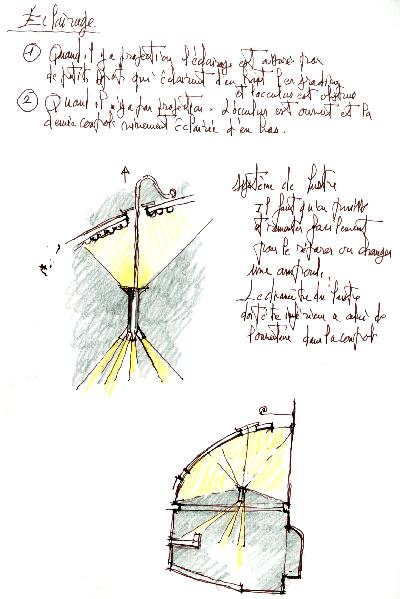 Eclairage
① Quand il y a projection l'éclairage est assuré par
de petits spots qui éclairent d'en haut les gradins
et l'occulus est obturé
② Quand il n'y a pas projection. L'occulus est ouvert et la
demie coupole éclairée d'en bas.
Système de lustre
Il faut qu'on puisse
et remonter facilement
pour le réparer ou changer
une ampoule.
Le diamètre du lustre
doit être inférieur à celui de
l'ouverture dans la coupole